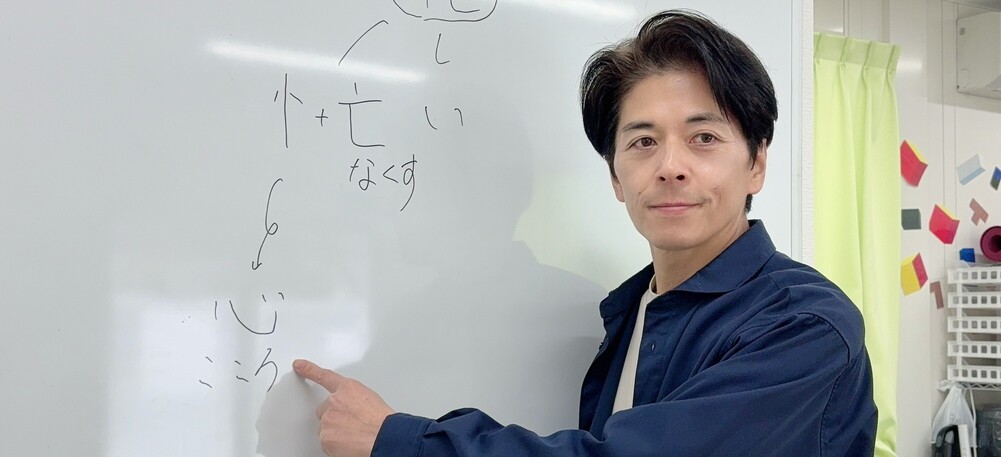 し
忄+亡 い
なくす
心
こころ